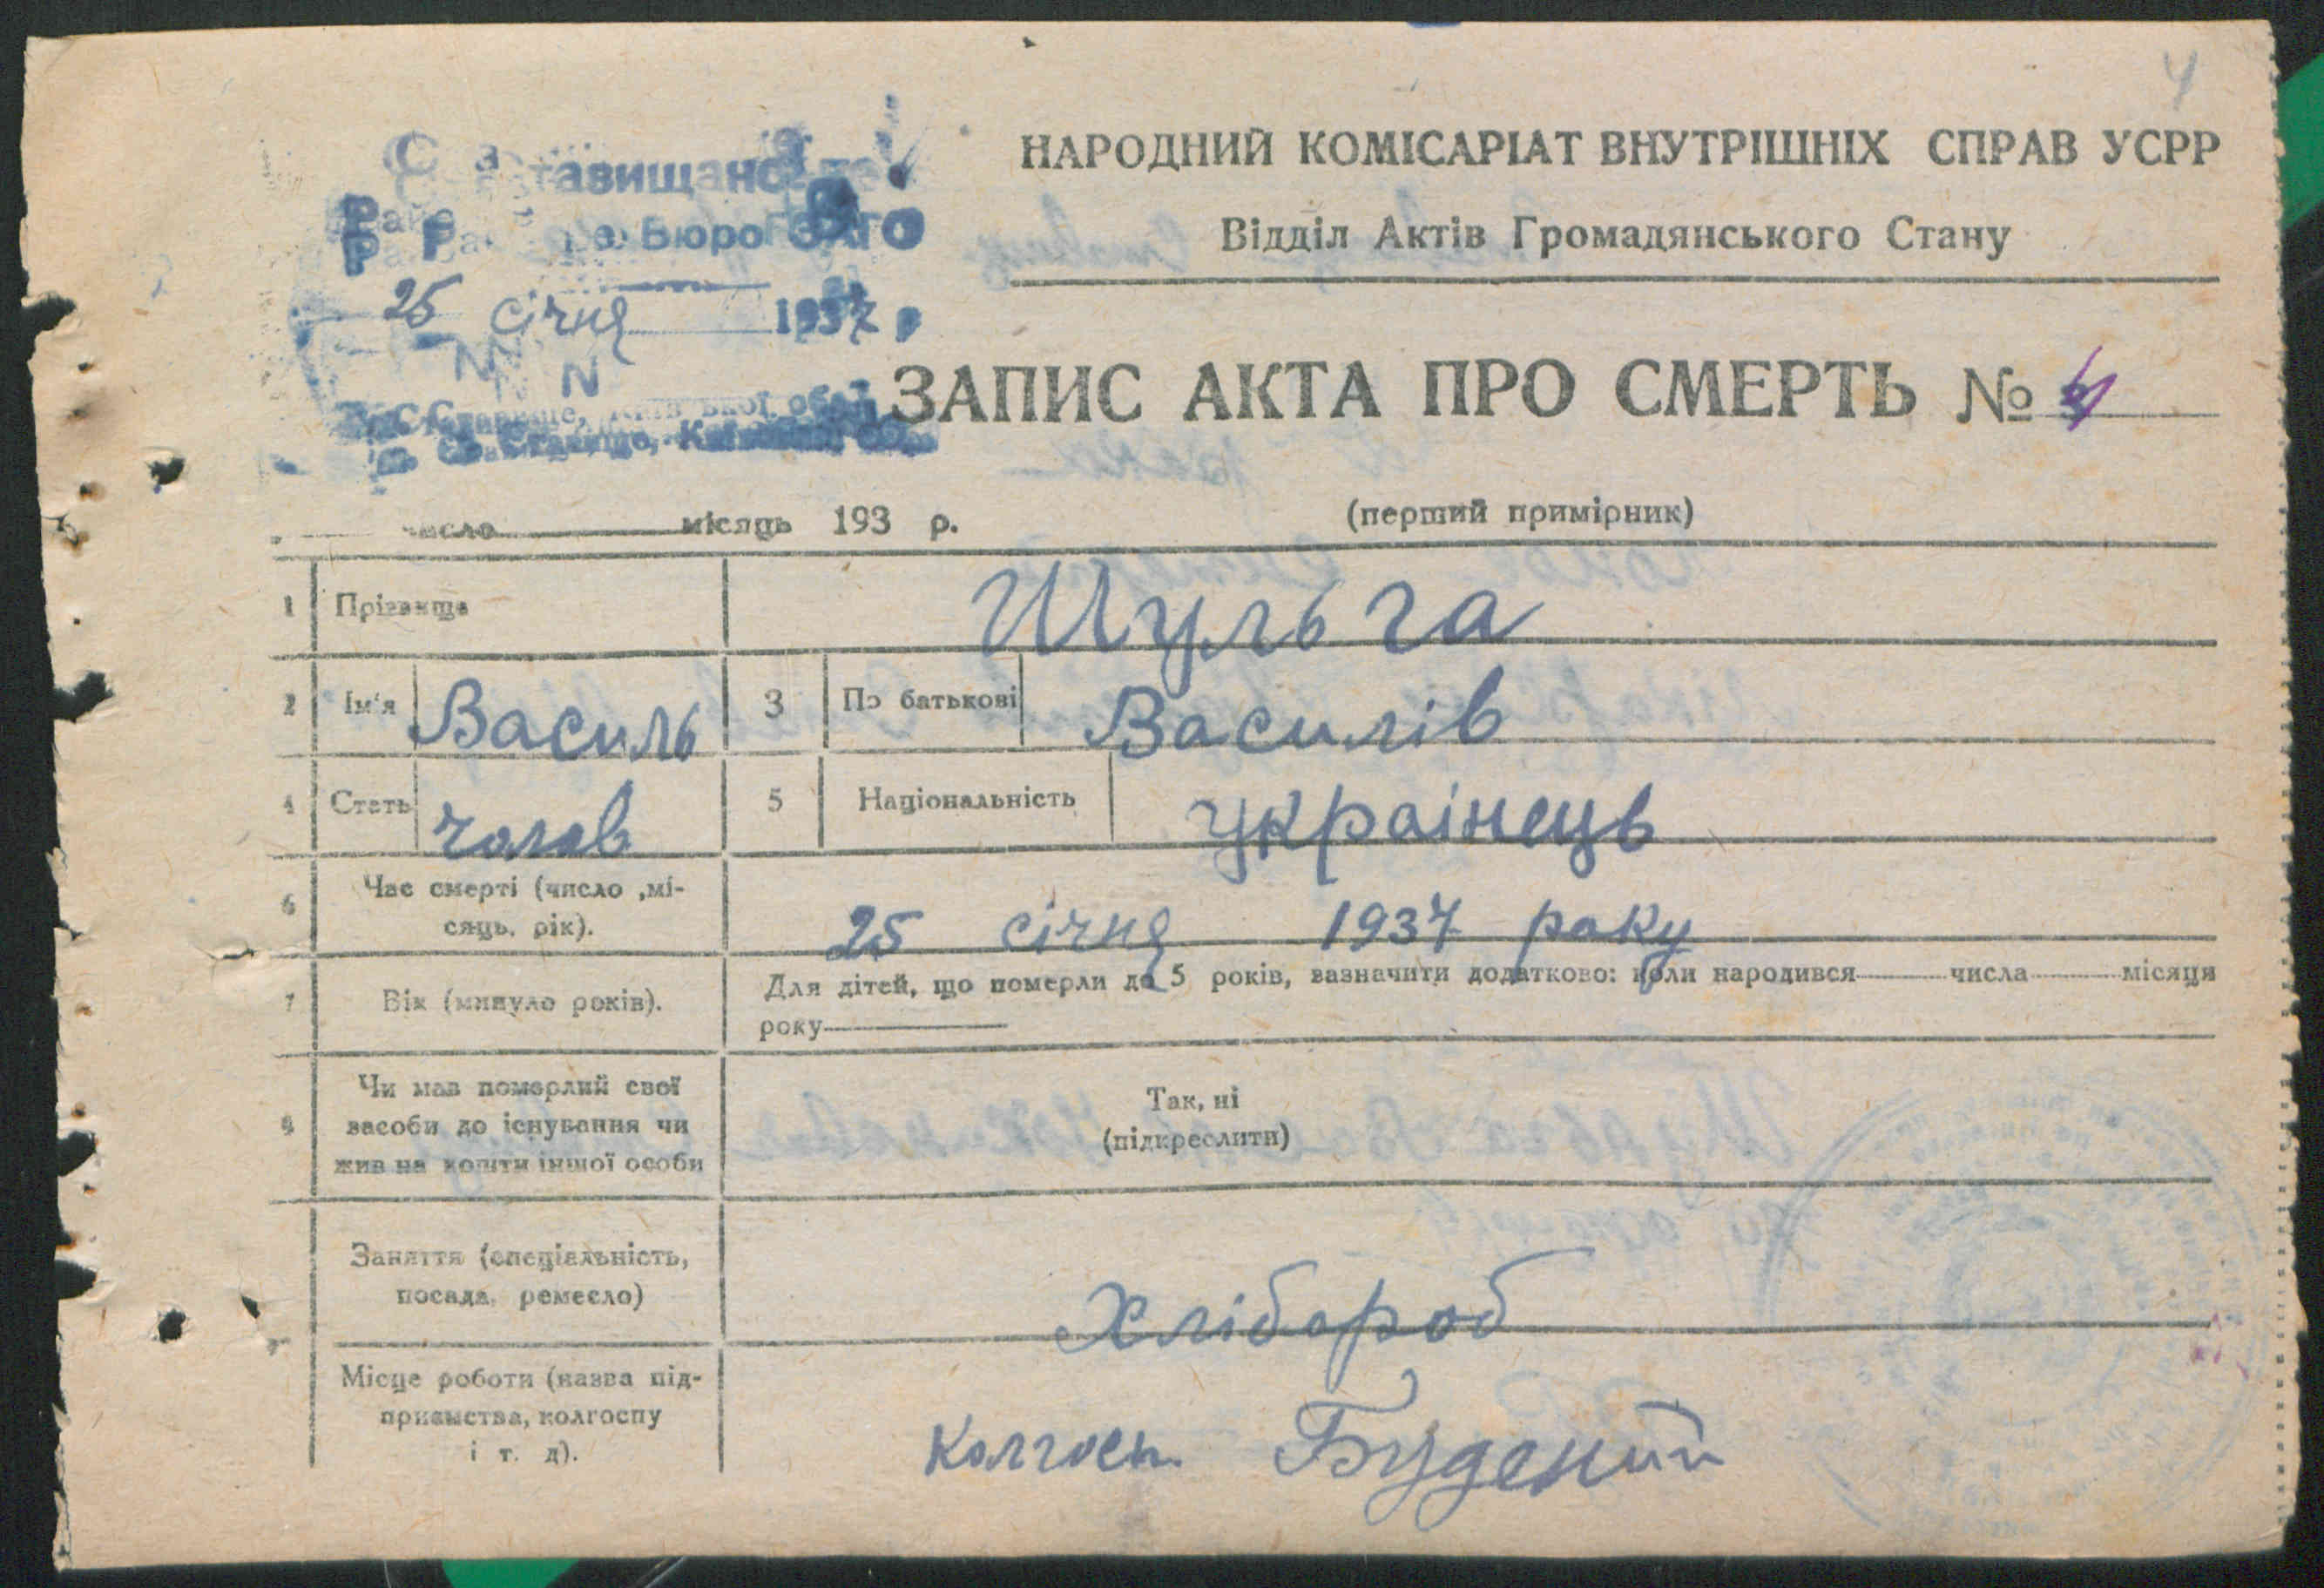 4
Ставищанс
Бюро ЗАГС
25 січня 1937 р
с. Ставище, Київської обл.
НАРОДНИЙ КОМІСАРІАТ ВНУТРІШНІХ СПРАВ УСРР
Відділ Актів Громадянського Стану
ЗАПИС АКТА ПРО СМЕРТЬ №
число місяць 193 р. (перший примірник)
1 Прізвище Шульга
2 Ім'я Василь 3 По батькові Василів
4 Стать чолов 5 Національність українець
6 Час смерті (число ,мі-
сяць, рік). 25 січня 1937 року
7 Вік (минуло років). Для дітей, що померли до 5 років, зазначити додатково: коли народився числа місяця
року
8 Чи мав померлий свої
засоби до існування чи
жив на кошти іншої особи
Так, ні
(підкреслити)
Заняття (спеціальність,
посада, ремесло) Хлібороб
Місце роботи (назва під-
приємства, колгоспу
і т. д).
колгосп. Будений